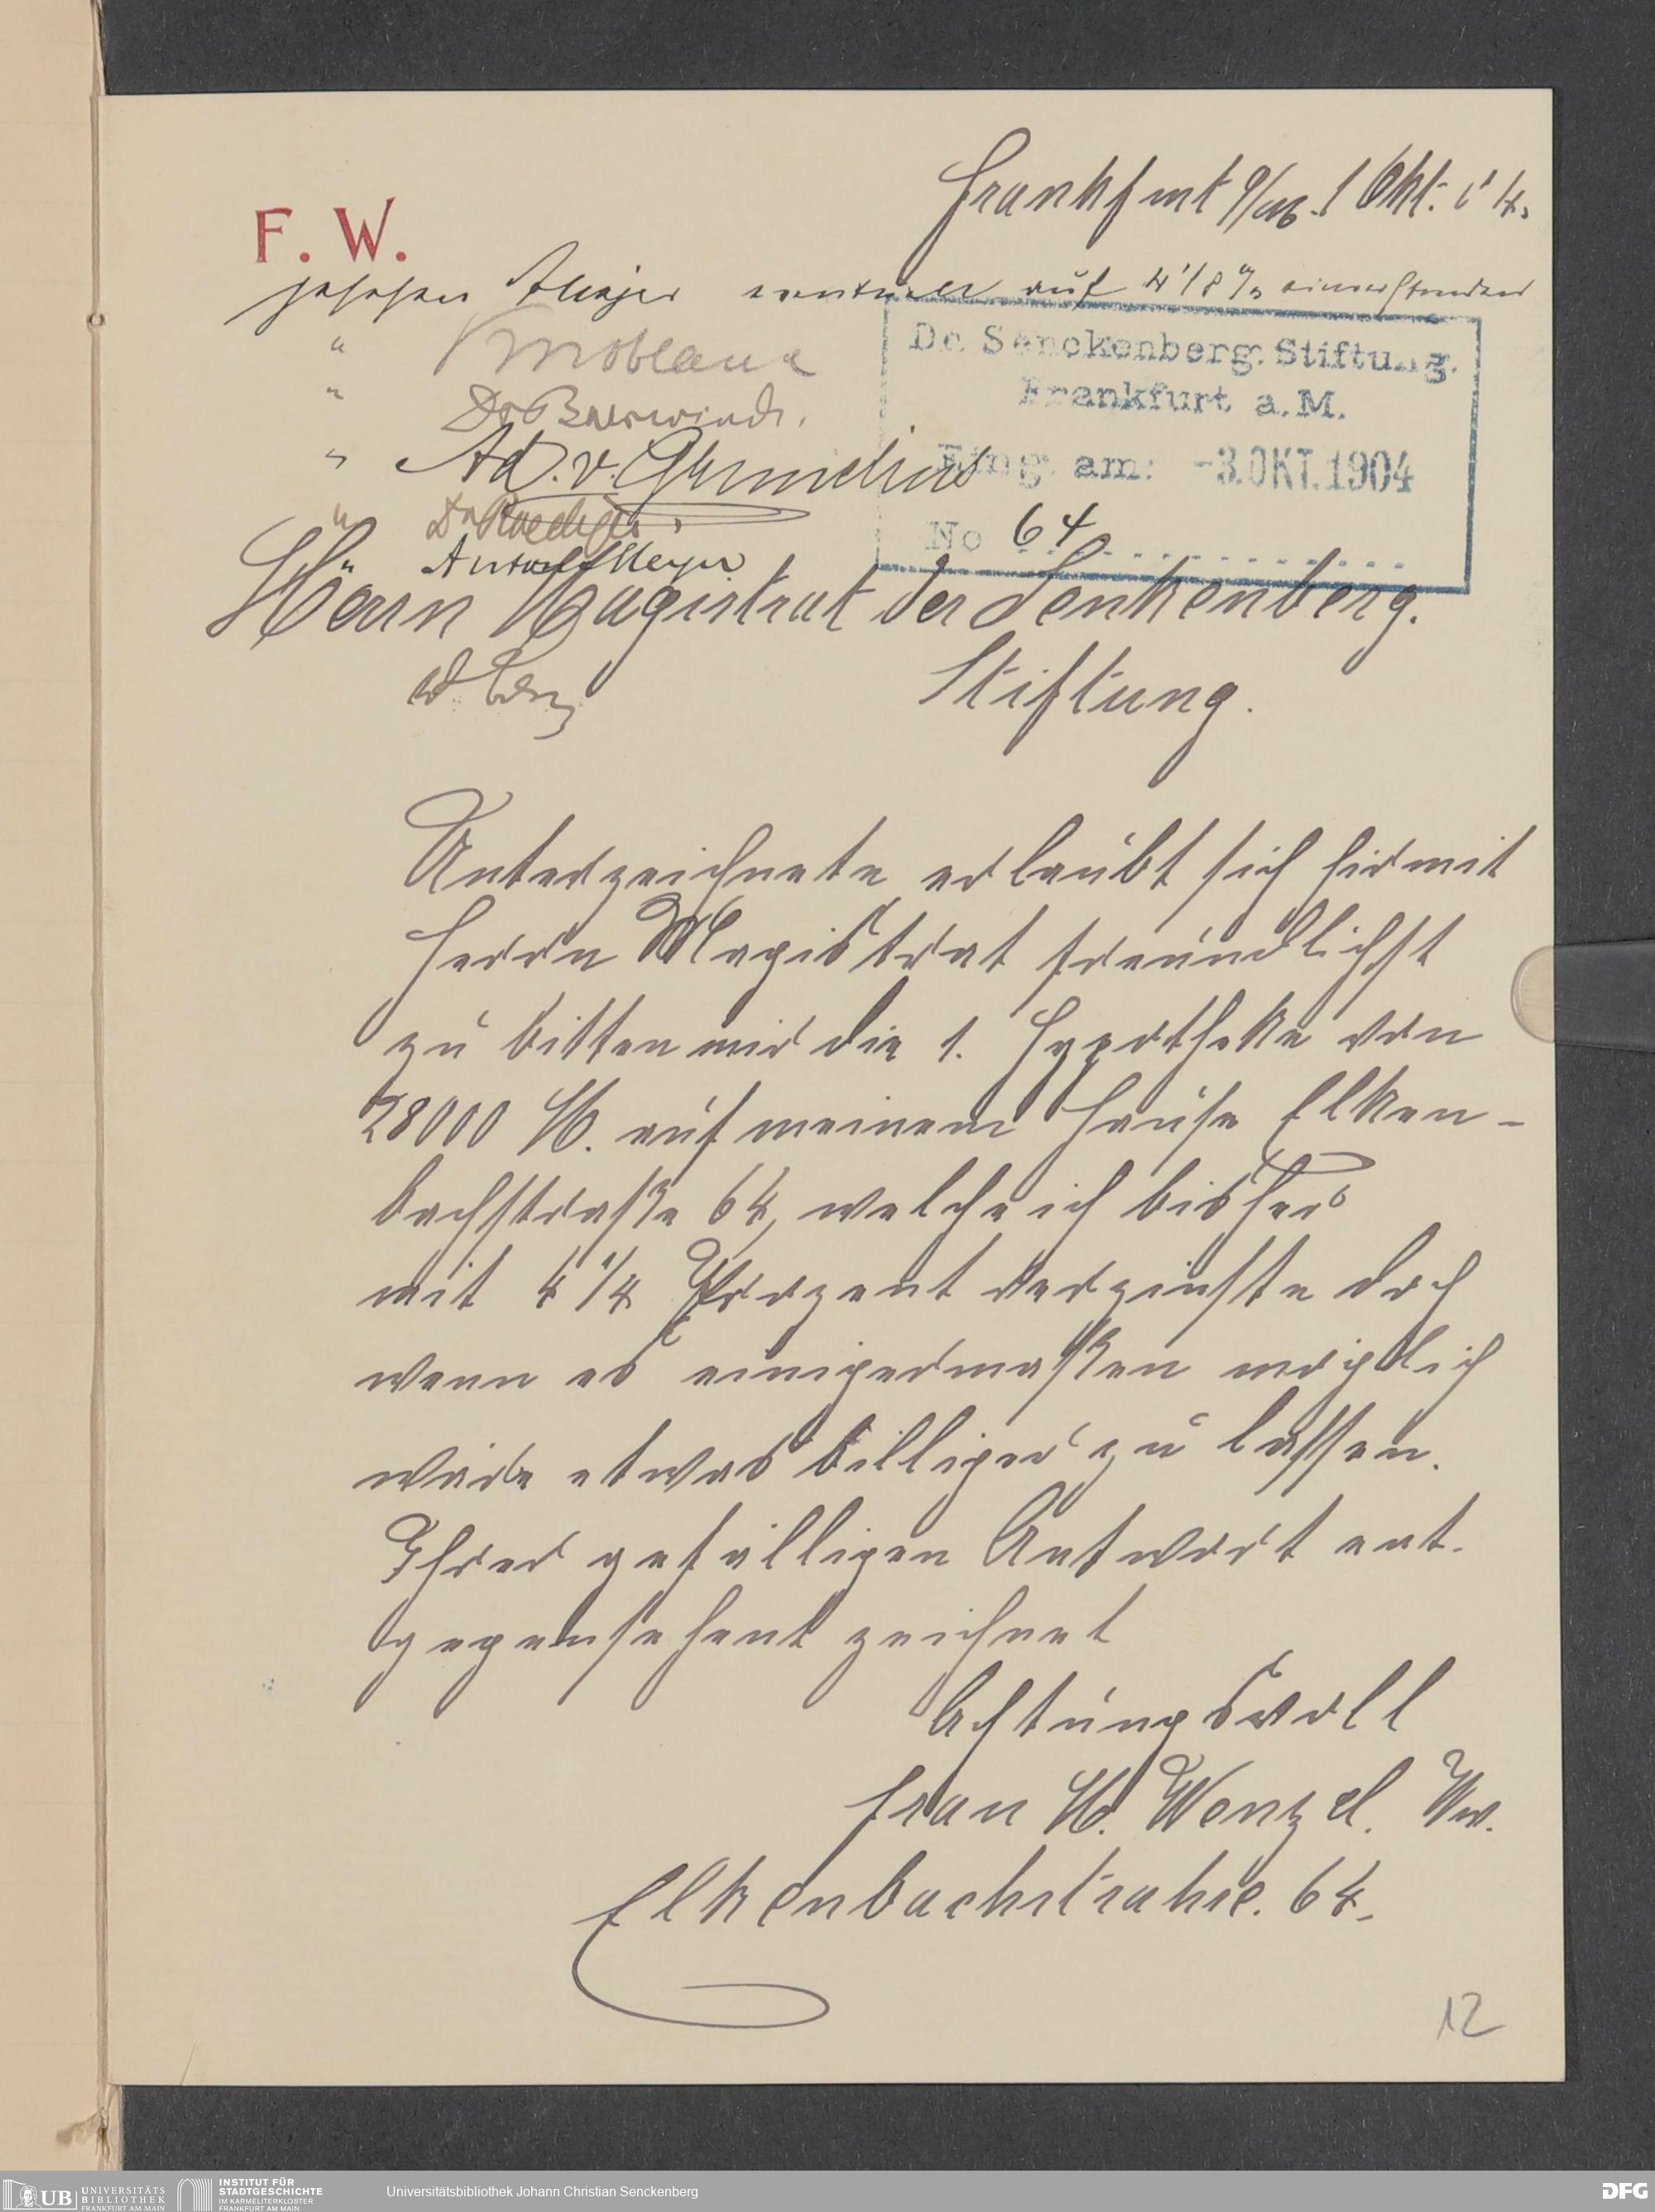 Frankfurt a/M. 1 Okt. 04.
F. W.
gesehen eventuell auf 4 1/8 % einverstanden
" Knoblauch
" Dr Baerwindt.
" Ad. v. Grunelius
" Dr Roediger.
" Anton Meyer
Dr. Senckenberg. Stiftung.
Frankfurt a. M.
Eing. am: -3. OKT. 1904
No 64
Herrn Magistrat der Senkenberg.
Stiftung.
Unterzeichnete erlaubt sich hirmit
Herrn Magistrat freundlichst
zu bitten mir die 1. Hypotheke von
28000 M. auf meinem Hause Elken-
bachstraße 64, welche ich bisher
mit 4 1/4 Prozent verzinste doch
wenn es einigermaßen möglich
wäre etwas billiger zu lassen.
Ihrer gefälligen Antwort ent-
gegensehent zeichnet
Achtungsvoll
Frau M. Wenzel. Ww.
Elkenbachstrahse. 64.
12
UB UNIVERSITÄTS
BIBLIOTHEK
FRANKFURT AM MAIN
INSTITUT FÜR
STADTGESCHICHTE
IM KARMELITERKLOSTER
FRANKFURT AM MAIN
Universitätsbibliothek Johann Christian Senckenberg
DFG